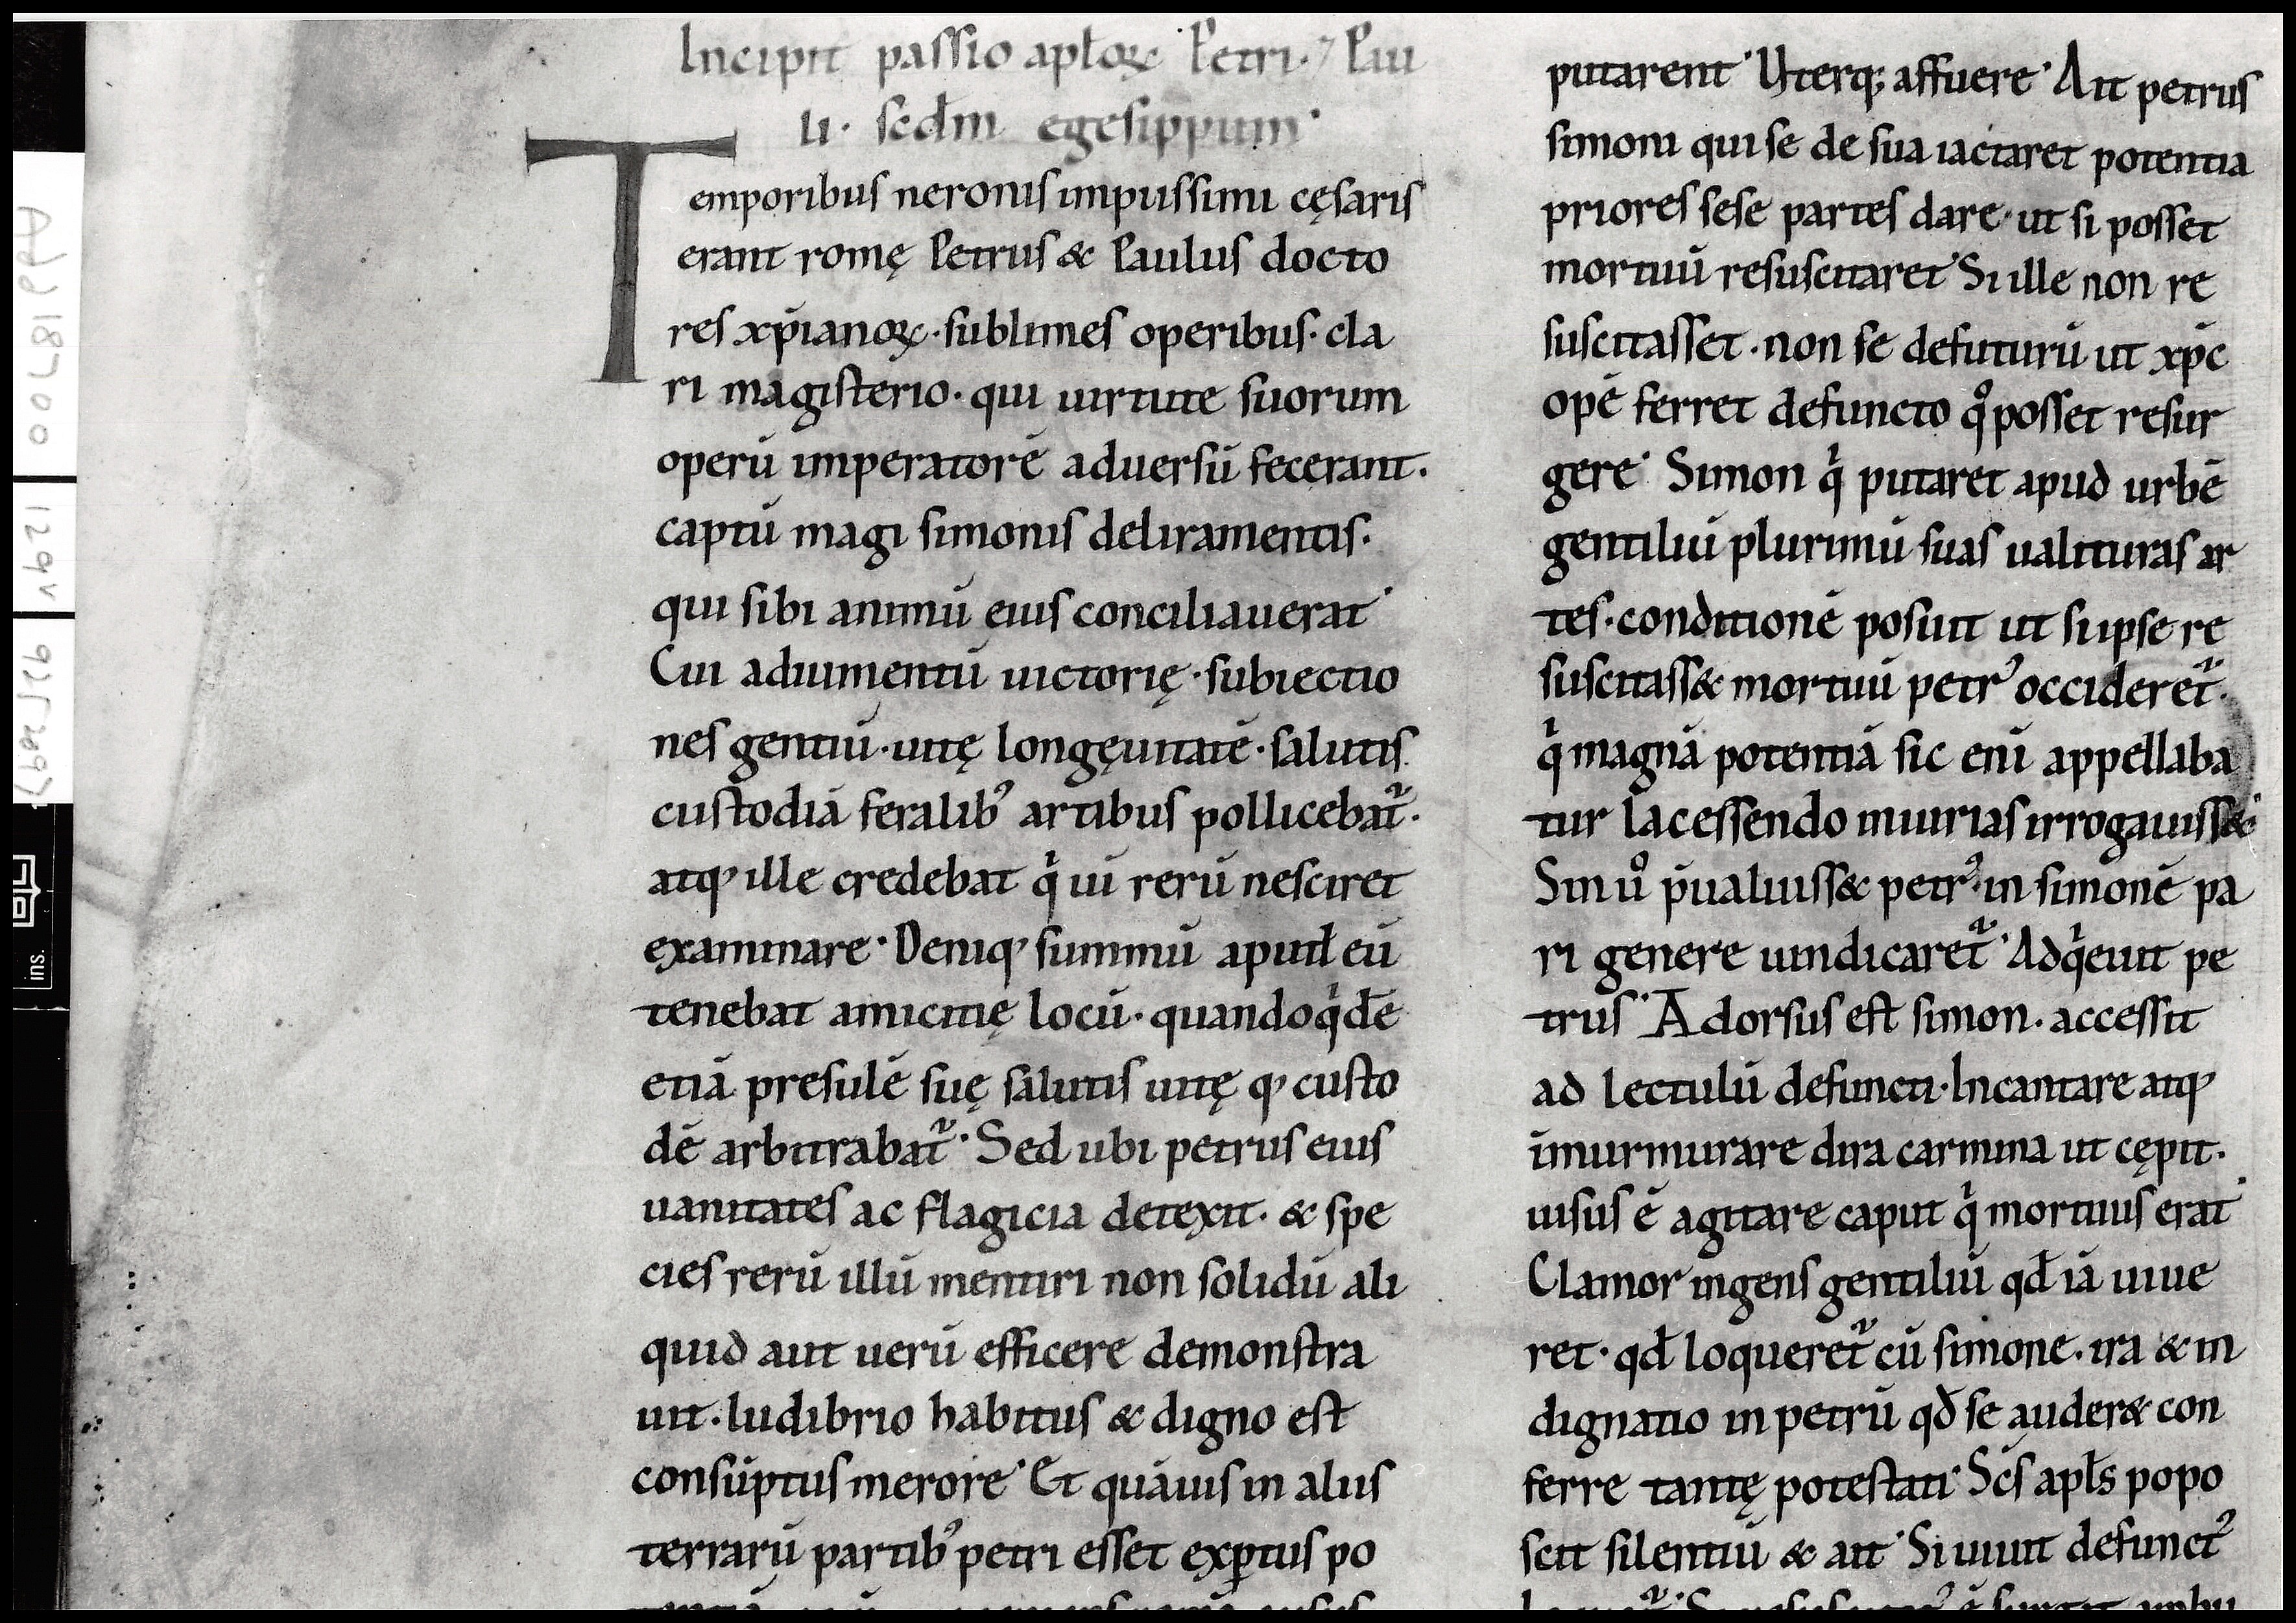 Incipit passio apƚoꝝ Petri· ⁊ Pau
li· scđm egesippum·
Temporibus neronis impiissimi cęsaris
erant romę Petrus & Paulus docto
res xp̄ianoꝝ· sublimes operibus· cla
ri magisterio· qui uirtute suorum
operū imperatorē aduersū fecerant·
captū magi simonis deliramentis·
qui sibi animū eius conciliauerat·
Cui adiumentū uictorię· subiectio
nes gentiū· uitę longęuitatē· salutis
custodiā feralibꝰ artibus pollicebat᷑·
atq; ille credebat qͥ uī rerū nesciret
examinare· Deniq; summū apud eū
tenebat amicitię locū· quandoqͥdē
etiā presulē suę salutis uitę q; custo
dē arbitrabat᷑· Sed ubi petrus eius
uanitates ac flagicia detexit· & spe
cies rerū illū mentiri non solidū ali
quid aut uerū efficere demonstra
uit· ludibrio habitus & digno est
consūptus merore· Et quāuis in aliis
terrarū partibꝰ petri esset exꝑtus po
putarent· Uterq; affuere· Ait petrus
simoni qui se de sua iactaret potentia
priores sese partes dare· ut si posset
mortuū resuscitaret· Si ille non re
suscitasset· non se defuturū ut xp̄c
opē ferret defuncto qͦ posset resur
gere· Simon qͥ putaret apud urbē
gentiliū plurimū suas ualituras ar
tes· conditionē posuit ut si ipse re
suscitass& mortuū petrꝰ occideret᷑·
qͥ magnā potentiā sic enī appellaba
tur lacessendo iniurias irrogauiss&·
Sin uͦ p̄ualuiss& petrꝰ· in simonē pa
ri genere uindicaret᷑· Adqͥeuit pe
trus· Adorsus est simon· accessit
ad lectulū defuncti· Incantare atq;
īmurmurare dira carmina ut cępit·
uisus ē agitare caput qͥ mortuus erat·
Clamor ingens gentiliū qđ iā uiue
ret· qđ loqueret᷑ cū simone· ira & in
dignatio in petrū qđ se auder& con
ferre tantę potestati· Scs̄ apƚs popo
scit silentiū & ait· Si uiuit defunctꝰ
Add 18700
129v
ins.